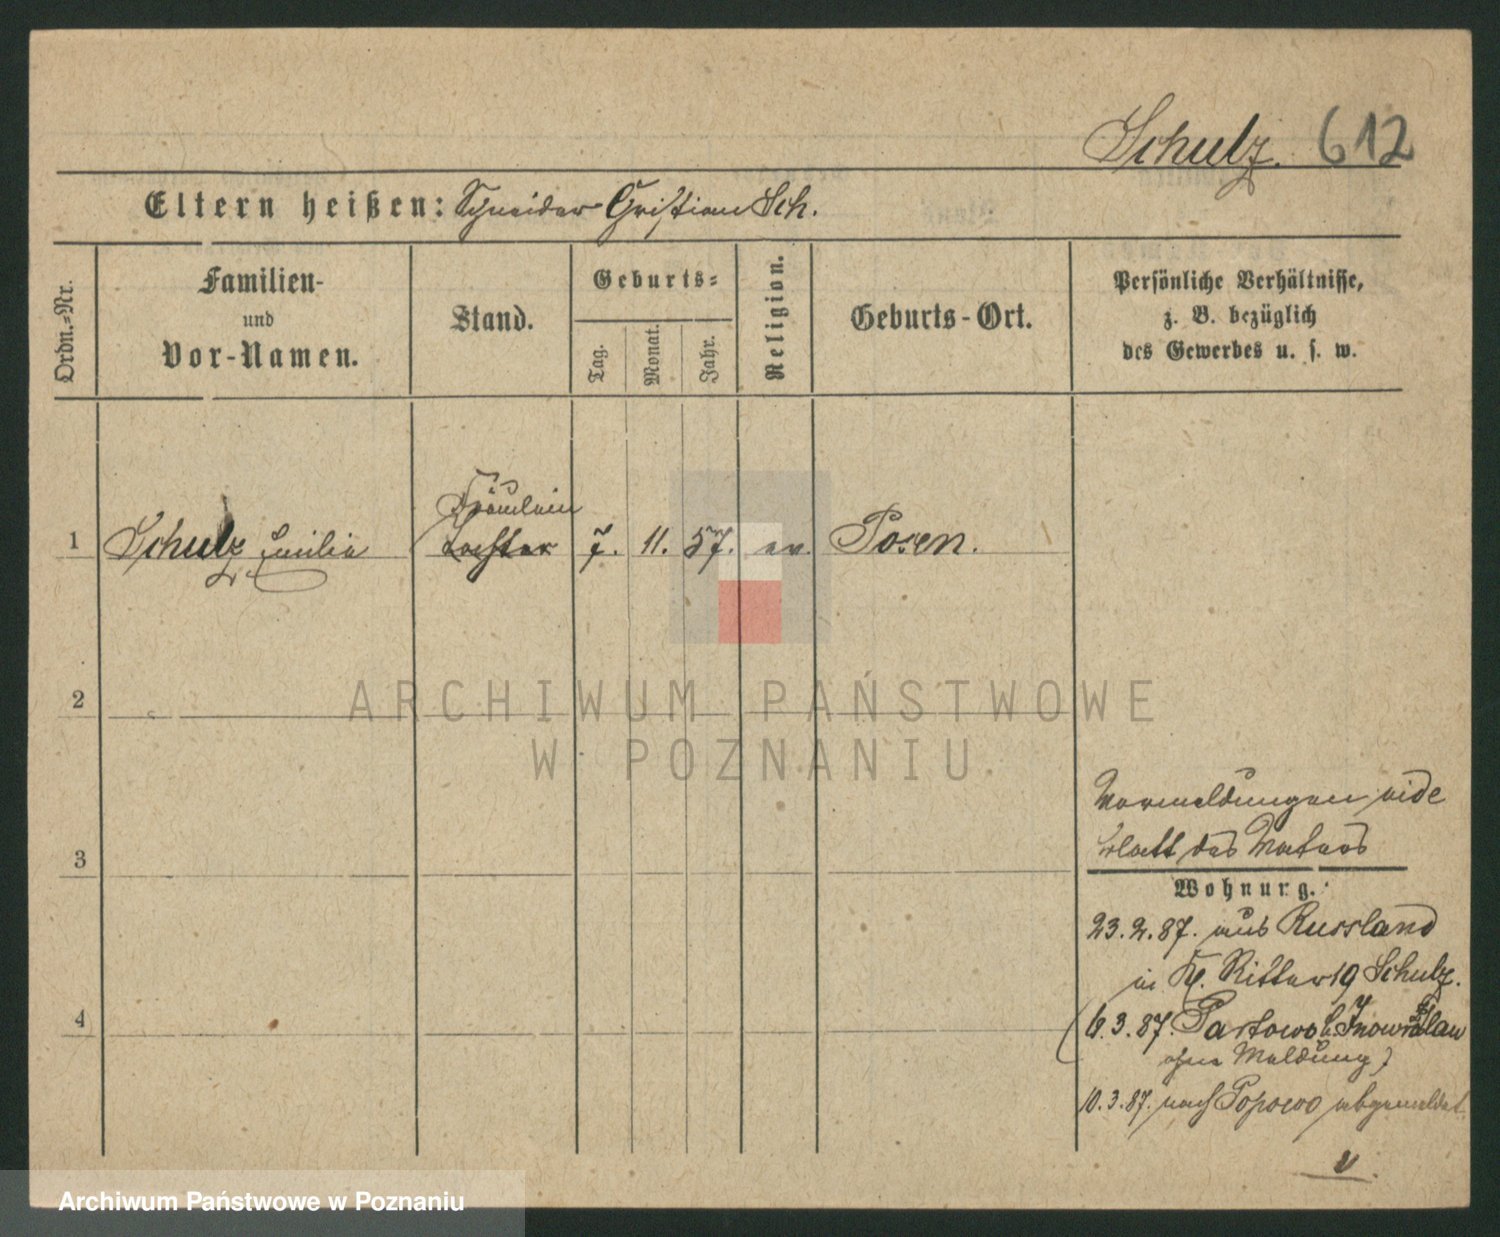 Schulz. 612
Eltern heißen: Schneider Christian Sch.
Ordn.-Nr.
Familien-
und
Vor-Namen.
Stand.
Geburts-
Tag.
Monat.
Jahr.
Religion.
Geburts-Ort.
Persönliche Verhältnisse,
z. B. bezüglich
des Gewerbes u. s. w.
Fräulein
1 Schulz Emilie Tochter 7. 11. 57. ev. Posen.
2
3
4
Vormeldungen vide
Blatt des Vaters
Wohnung.
23.2.87. aus Russland
in Kl. Ritter 19 Schulz.
(6.3.87. Partowo b. Inowrazlaw
ohne Meldung)
10.3.87. nach Popowo abgemeldet.
ARCHIWUM PAŃSTWOWE
W POZNANIU
Archiwum Państwowe w Poznaniu